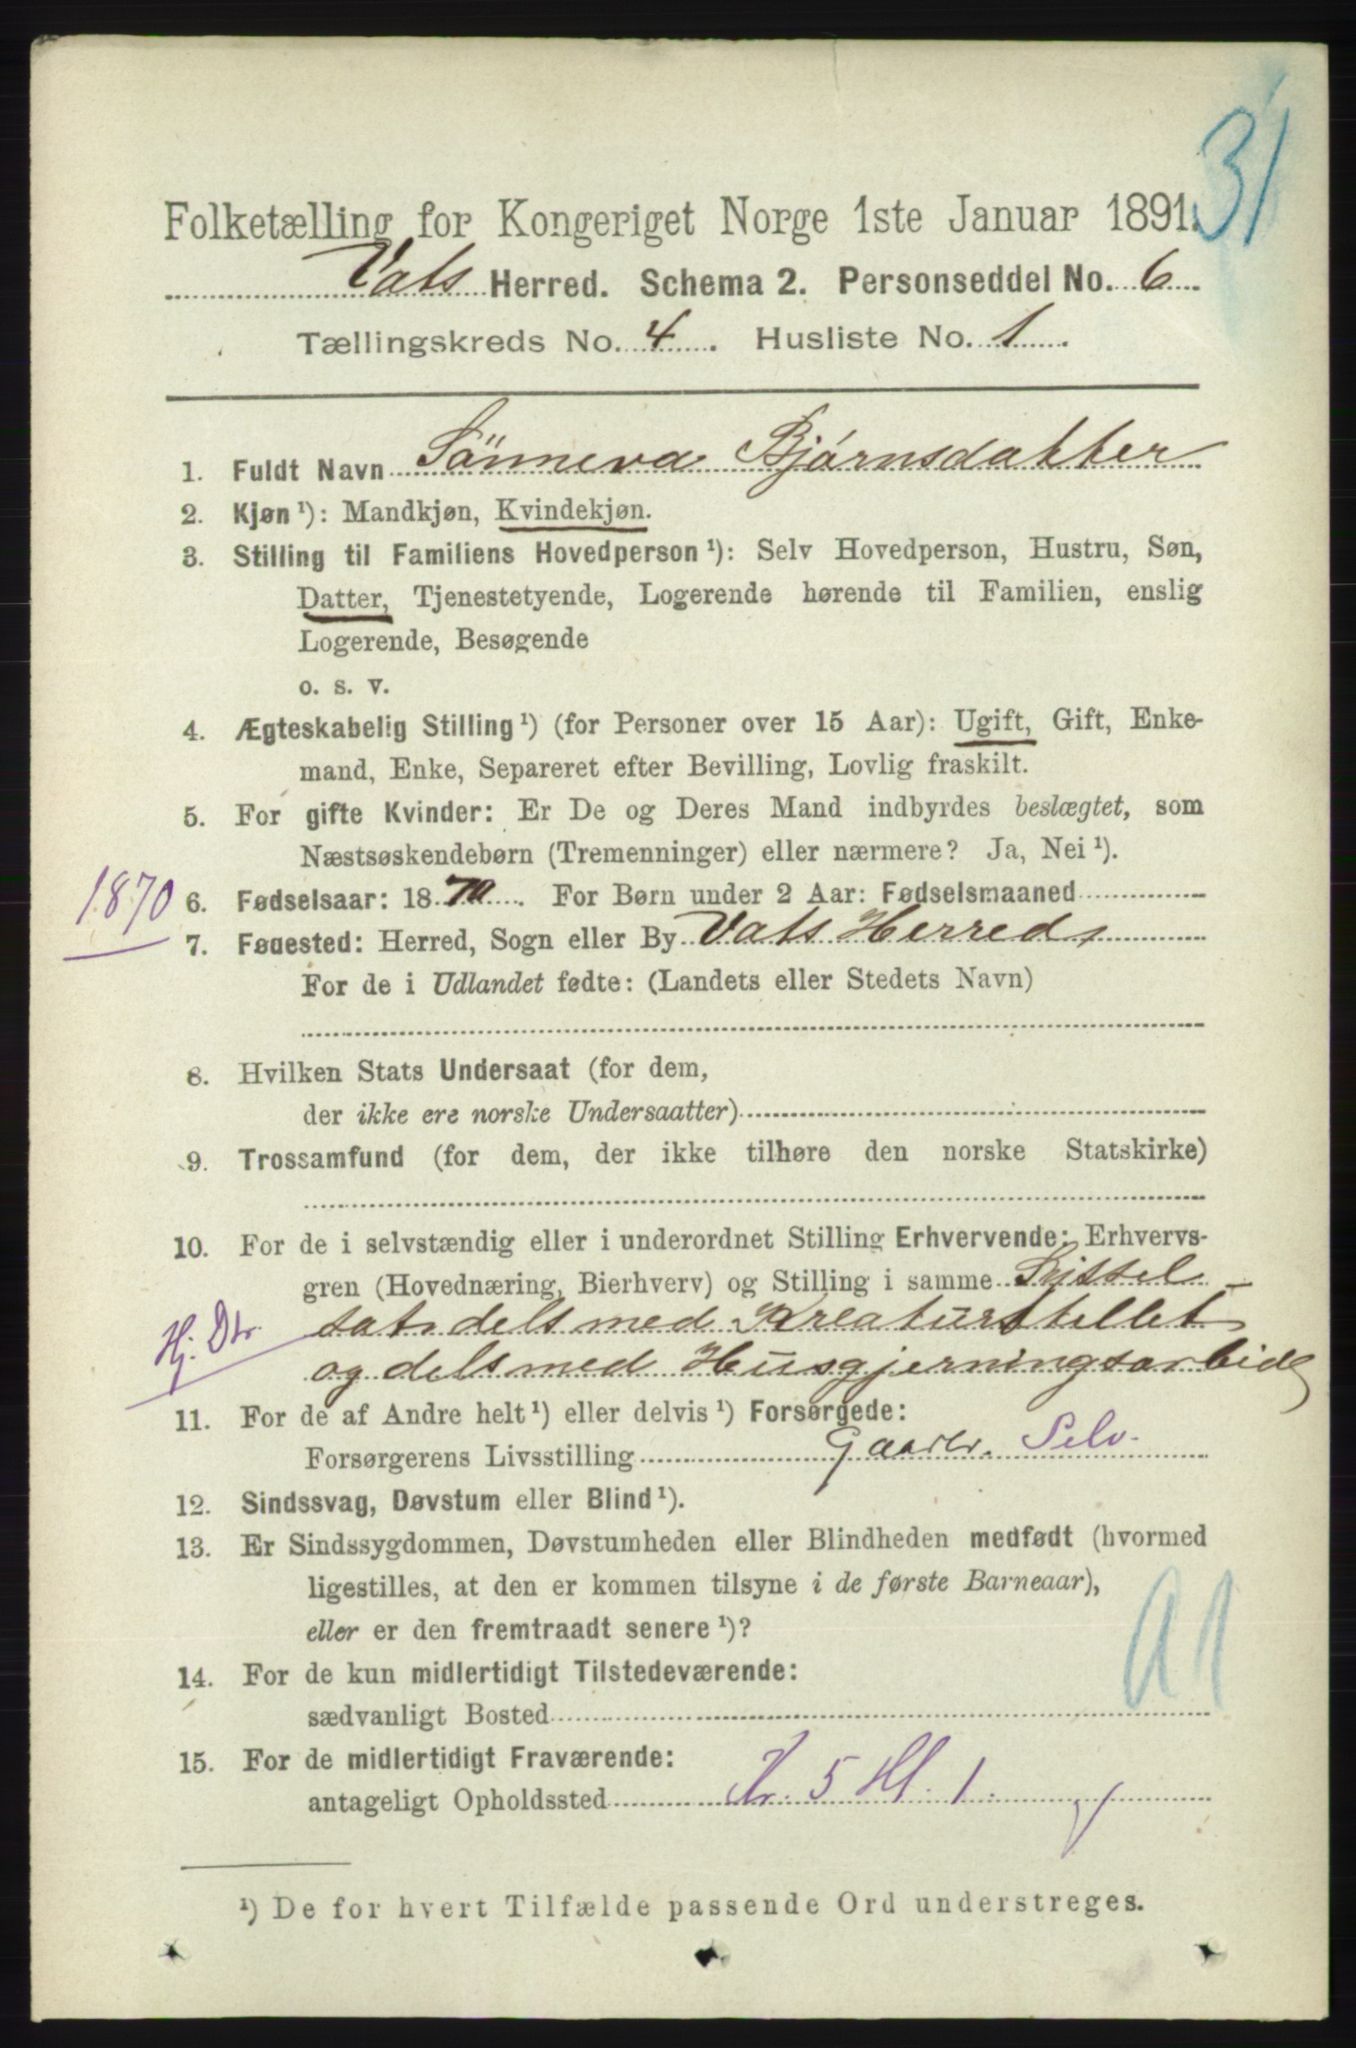 31
Folketælling for Kongeriget Norge 1ste Januar 1891.
Vats Herred. Schema 2. Personseddel No. 6
Tællingskreds No. 4. Husliste No. 1.
1. Fuldt Navn Sönneva Bjørnsdatter
2. Kjøn ¹): Mandkjøn, Kvindekjøn.
3. Stilling til Familiens Hovedperson ¹): Selv Hovedperson, Hustru, Søn,
Datter, Tjenestetyende, Logerende hørende til Familien, enslig
Logerende, Besøgende
o. s. v.
4. Ægteskabelig Stilling ¹) (for Personer over 15 Aar): Ugift, Gift, Enke-
mand, Enke, Separeret efter Bevilling, Lovlig fraskilt.
5. For gifte Kvinder: Er De og Deres Mand indbyrdes beslægtet, som
Næstsøskendebørn (Tremenninger) eller nærmere? Ja, Nei ¹).
1870
6. Fødselsaar: 1870. For Børn under 2 Aar: Fødselsmaaned
7. Fødested: Herred, Sogn eller By Vats Herred,
For de i Udlandet fødte: (Landets eller Stedets Navn)
8. Hvilken Stats Undersaat (for dem,
der ikke ere norske Undersaatter)
9. Trossamfund (for dem, der ikke tilhøre den norske Statskirke)
10. For de i selvstændig eller i underordnet Stilling Erhvervende: Erhvervs-
gren (Hovednæring, Bierhverv) og Stilling i samme Syssel-
Hj. Dtr. sat dels med Kreaturstellet
og dels med Husgjerningsarbide
11. For de af Andre helt ¹) eller delvis ¹) Forsørgede:
Forsørgerens Livsstilling Gaardbr. Selv.
12. Sindssvag, Døvstum eller Blind ¹).
13. Er Sindssygdommen, Døvstumheden eller Blindheden medfødt (hvormed
ligestilles, at den er kommen tilsyne i de første Barneaar),
eller er den fremtraadt senere ¹)?
14. For de kun midlertidigt Tilstedeværende:
sædvanligt Bosted
15. For de midlertidigt Fraværende:
antageligt Opholdssted Kr. 5 Hl. 1.
¹) De for hvert Tilfælde passende Ord understreges.